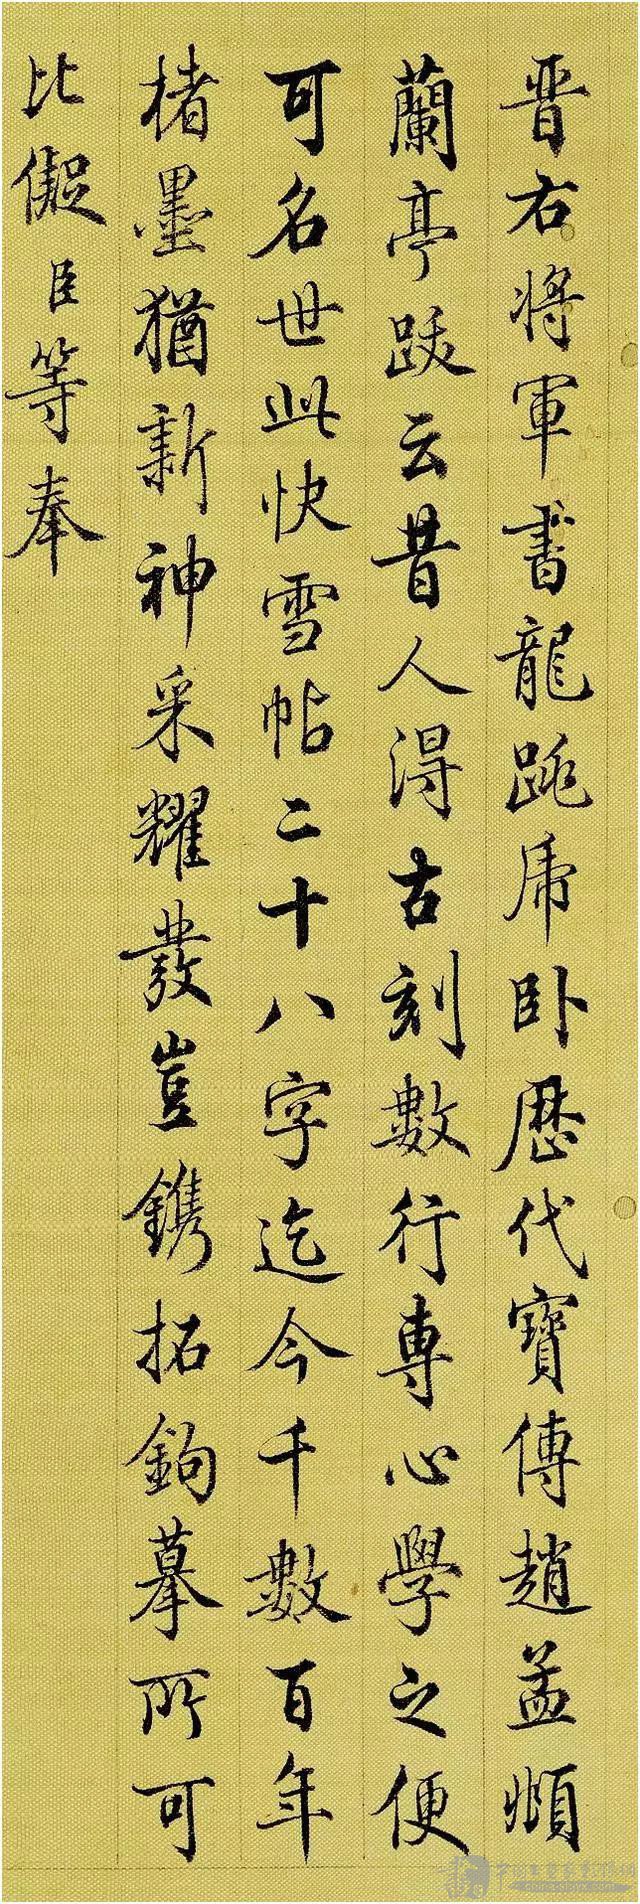 晋右将軍書龍跳席卧歷代寶傳趙孟頫
蘭亭跋云昔人得古刻數行專心學之便
可名世此快雪帖二十八字迄今千數百年
楮墨猶新神采耀發豈鐫拓鉤摹所可
比儗臣等奉